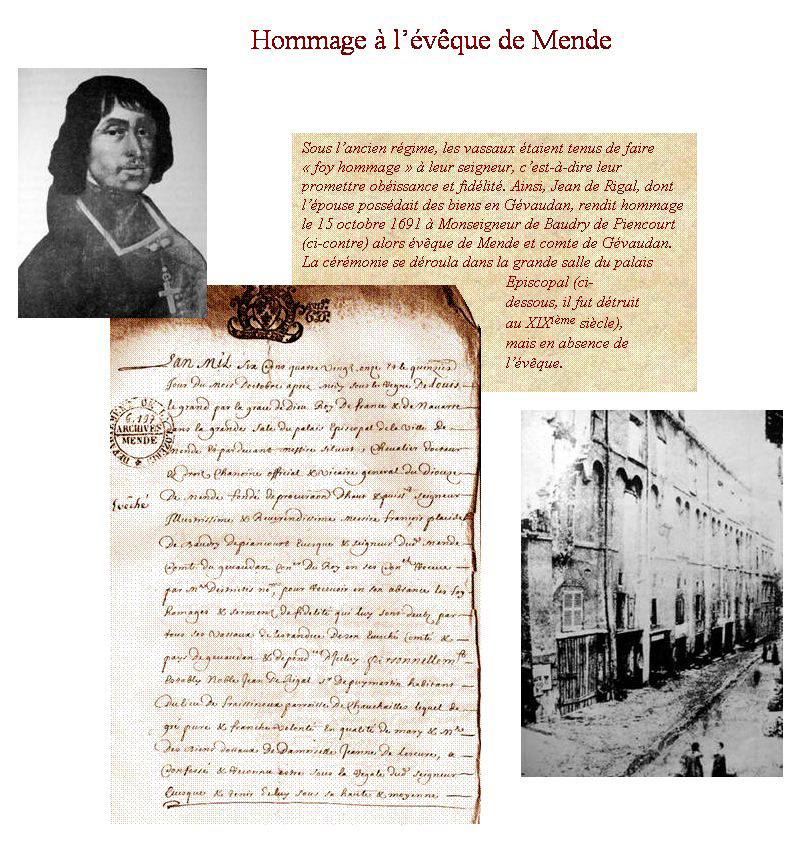 Hommage à l’évêque de Mende
Sous l’ancien régime, les vassaux étaient tenus de faire
« foy hommage » à leur seigneur, c’est-à-dire leur
promettre obéissance et fidélité. Ainsi, Jean de Rigal, dont
l’épouse possédait des biens en Gévaudan, rendit hommage
le 15 octobre 1691 à Monseigneur de Baudry de Piencourt
(ci-contre) alors évêque de Mende et comte de Gévaudan.
La cérémonie se déroula dans la grande salle du palais
Episcopal (ci-
dessous, il fut détruit
au XIXième siècle),
mais en absence de
l’évêque.
Lan Mil six Cens quatre vingt onze & le quinziesme
Jour du mois doctobre apres midy sous le regne de Louis
le grand par la grace de Dieu Roy de france & de Navarre
dans la grande sale du palais Episcopal de la ville de
mende
messire
Chevalier docteur
Chanoine official & vicaire general du dioceze
de mende fondé de procuraon
seigneur
Illustrissime & Reverendissime messire françois placide
de Baudry depiancourt Evesque & seigneur dud mende
Comte du gevaudan Coner du Roy en ses
pour recevoir en son absance les foy
homages & serment de fidelité qui luy sont deubs par
tous ses vassaux de lestandue de son Evesché Comté &
pays de gevaudan & personnellemt
Establi Noble Jean de Rigal sr de puymartin habitant
du lieu de fraissinoux parroisse de Chauchailles lequel de
gré pure & franche volonté En qualité de mary & me
des biens dotaux de Damoiselle Jeanne de Lescure, a
Confessé & reconnu estre sous la dud seigneur
Evesque & tenir de luy sous sa haute & moyenne
Evêché
DEPARTEMENT DE LA LOZERE
G.197
ARCHIVES
MENDE